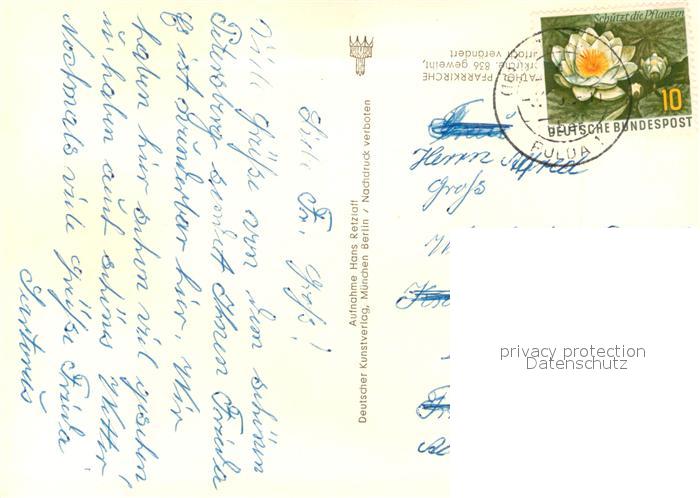 Schützt die Pflanzen
10
DEUTSCHE BUNDESPOST
FULDA
PFARRKIRCHE
836 geweiht,
verändert
Herrn Alfred
Groß
Aufnahme Hans Retzlaff
Deutscher Kunstverlag, München Berlin / Nachdruck verboten
Fr. Groß!
Viele Grüße von dem schönen
Petersberg sendet Ihnen Frieda
Es ist wunderbar hier. Wir
haben hier schon viel gesehen
u. haben auch schönes Wetter
Nochmals viele Grüße Frieda
privacy protection
Datenschutz